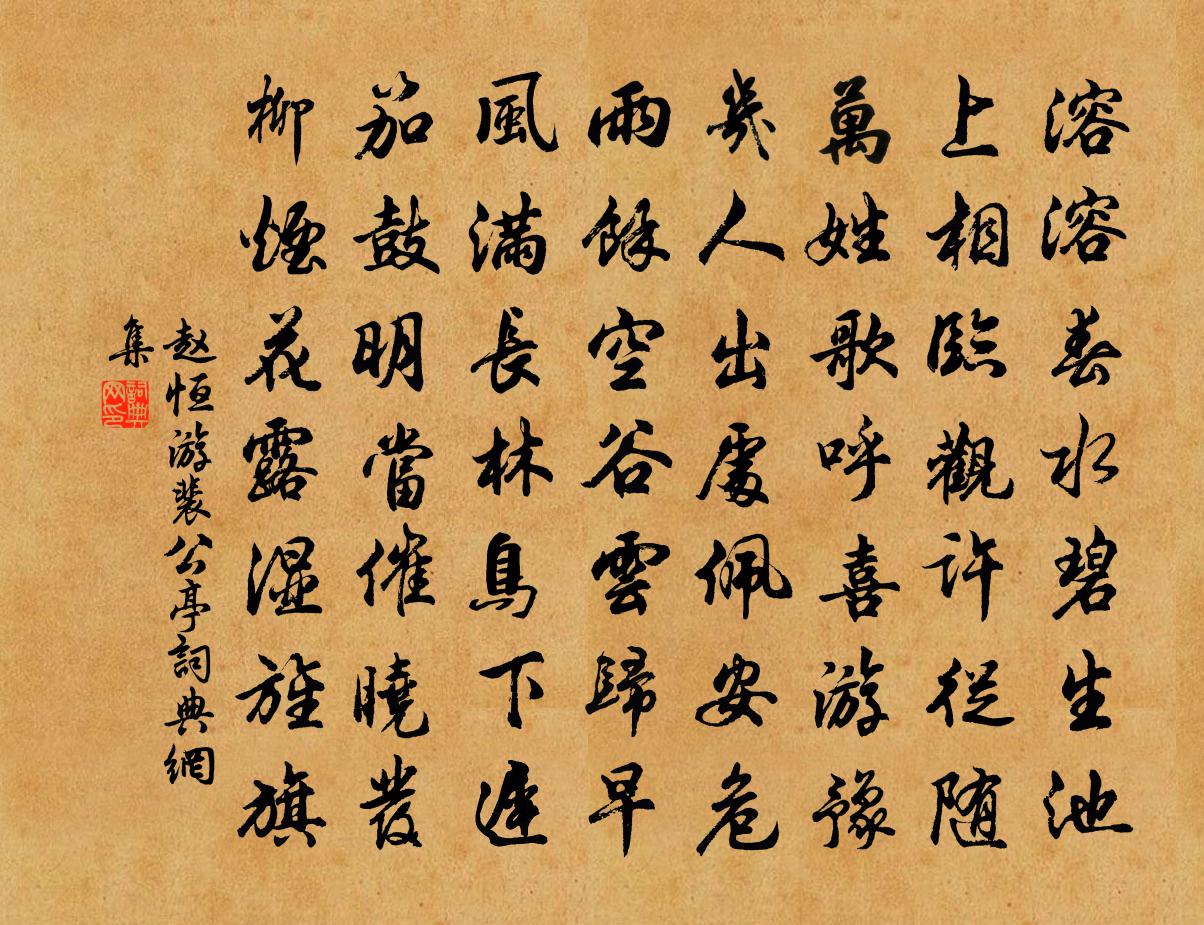 溶溶春水碧生池
上相臨觀許從随
萬姓歌呼喜游豫
幾人出處佩安危
雨餘空谷雲歸早
風滿長林鳥下遲
笳鼓明當催曉發
柳煙花露濕旌旗
赵恒游裴公亭詞典網
集
詞典网印